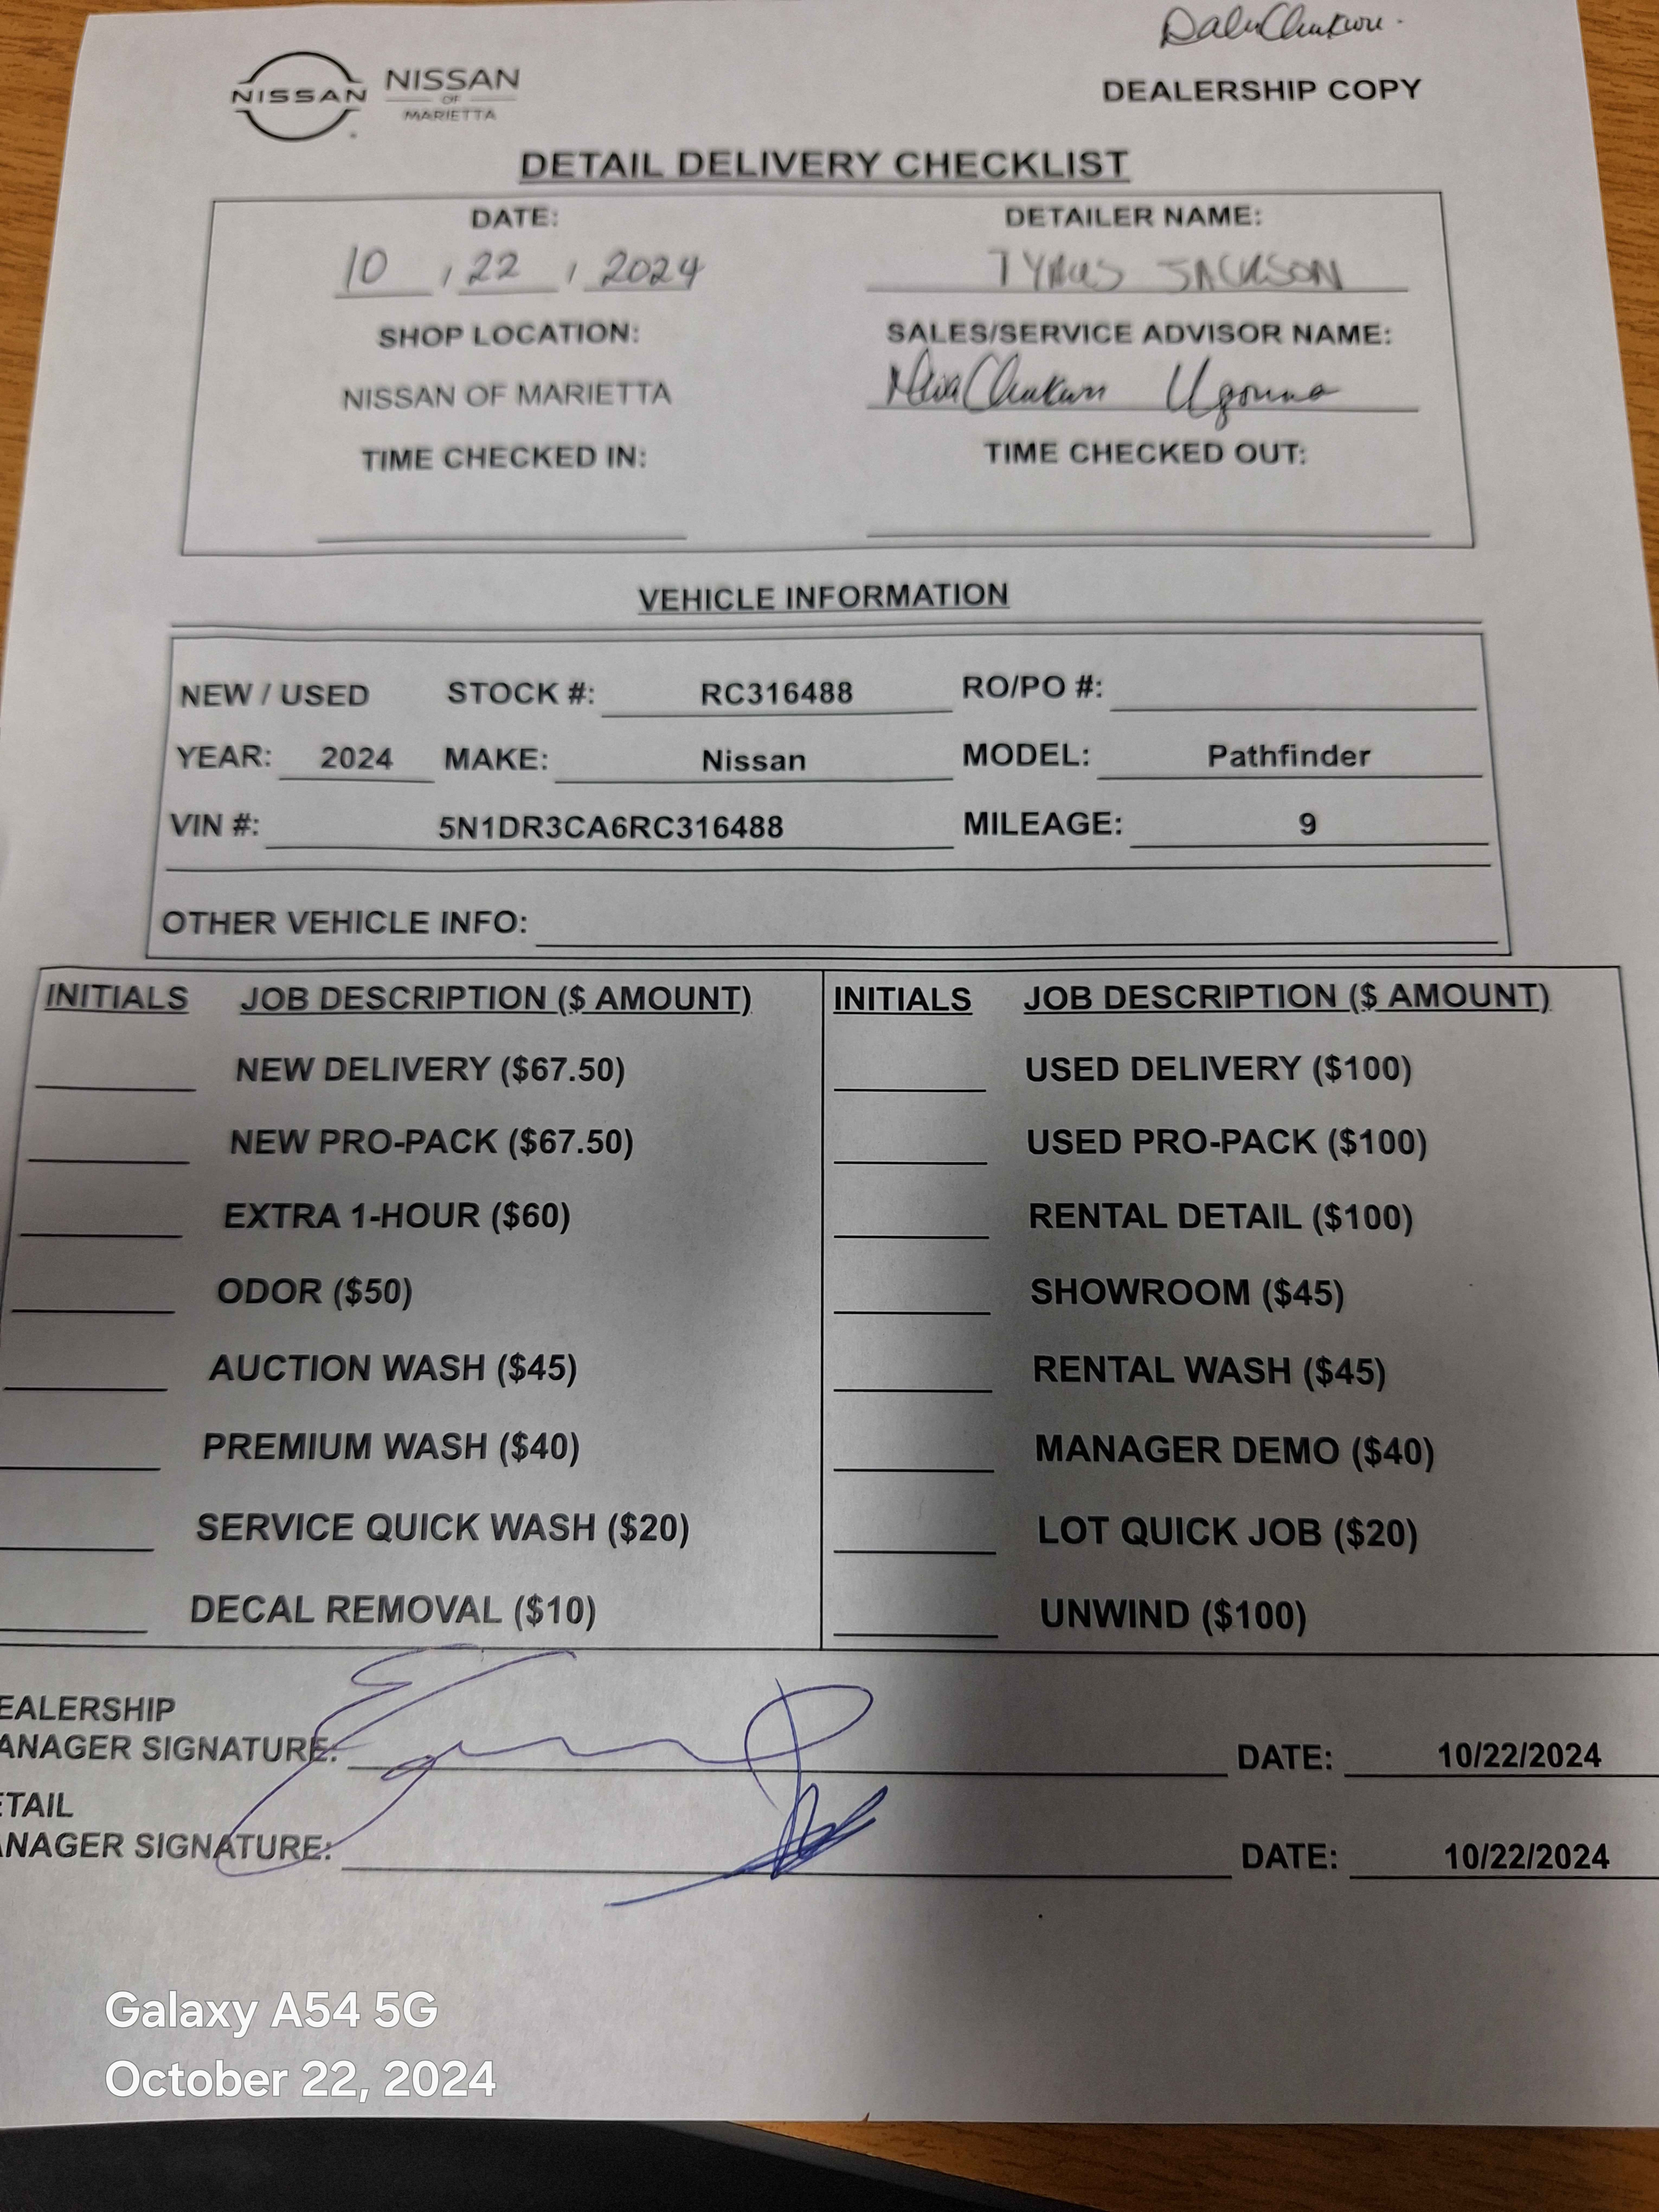 DaluChukwu.
NISSAN
NISSAN
OF
MARIETTA
DEALERSHIP COPY
DETAIL DELIVERY CHECKLIST
DATE: DETAILER NAME:
10 / 22 / 2024 TYRUS JACKSON
SHOP LOCATION: SALES/SERVICE ADVISOR NAME:
NISSAN OF MARIETTA Ugonna
TIME CHECKED IN: TIME CHECKED OUT:
VEHICLE INFORMATION
NEW / USED STOCK #: RC316488 RO/PO #:
YEAR: 2024 MAKE: Nissan MODEL: Pathfinder
VIN #: 5N1DR3CA6RC316488 MILEAGE: 9
OTHER VEHICLE INFO:
INITIALS JOB DESCRIPTION ($ AMOUNT) INITIALS JOB DESCRIPTION ($ AMOUNT)
NEW DELIVERY ($67.50) USED DELIVERY ($100)
NEW PRO-PACK ($67.50) USED PRO-PACK ($100)
EXTRA 1-HOUR ($60) RENTAL DETAIL ($100)
ODOR ($50) SHOWROOM ($45)
AUCTION WASH ($45) RENTAL WASH ($45)
PREMIUM WASH ($40) MANAGER DEMO ($40)
SERVICE QUICK WASH ($20) LOT QUICK JOB ($20)
DECAL REMOVAL ($10) UNWIND ($100)
EALERSHIP
ANAGER SIGNATURE: DATE: 10/22/2024
ETAIL
ANAGER SIGNATURE: DATE: 10/22/2024
Galaxy A54 5G
October 22, 2024